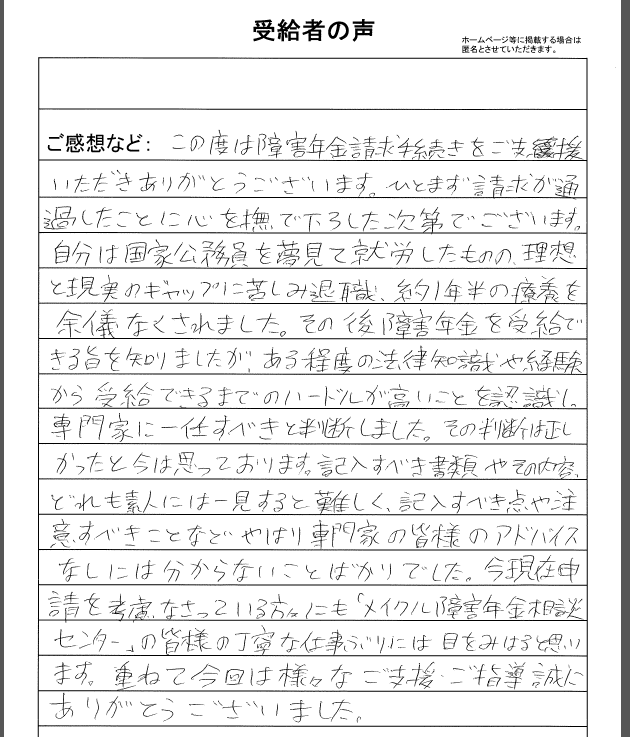 受給者の声
ホームページ等に掲載する場合は
匿名とさせていただきます。
ご感想など： この度は障害年金請求手続きをご支援
いただきありがとうございます。ひとまず請求が通
過したことに心を撫で下ろした次第でございます。
自分は国家公務員を夢見て就労したものの、理想
と現実のギャップに苦しみ退職、約1年半の療養を
余儀なくされました。その後障害年金を受給で
きる旨を知りましたが、ある程度の法律知識や経験
から受給できるまでのハードルが高いことを認識し、
専門家に一任すべきと判断しました。その判断は正し
かったと今は思っております。記入すべき書類やその内容、
どれも素人には一見すると難しく、記入すべき点や注
意すべきことなどやはり専門家の皆様のアドバイス
なしには分からないことばかりでした。今現在申
請を考慮なさっている方々にも「メイクル障害年金相談
センター」の皆様の丁寧な仕事ぶりには目をみはると思い
ます。重ねて今回は様々なご支援・ご指導誠に
ありがとうございました。